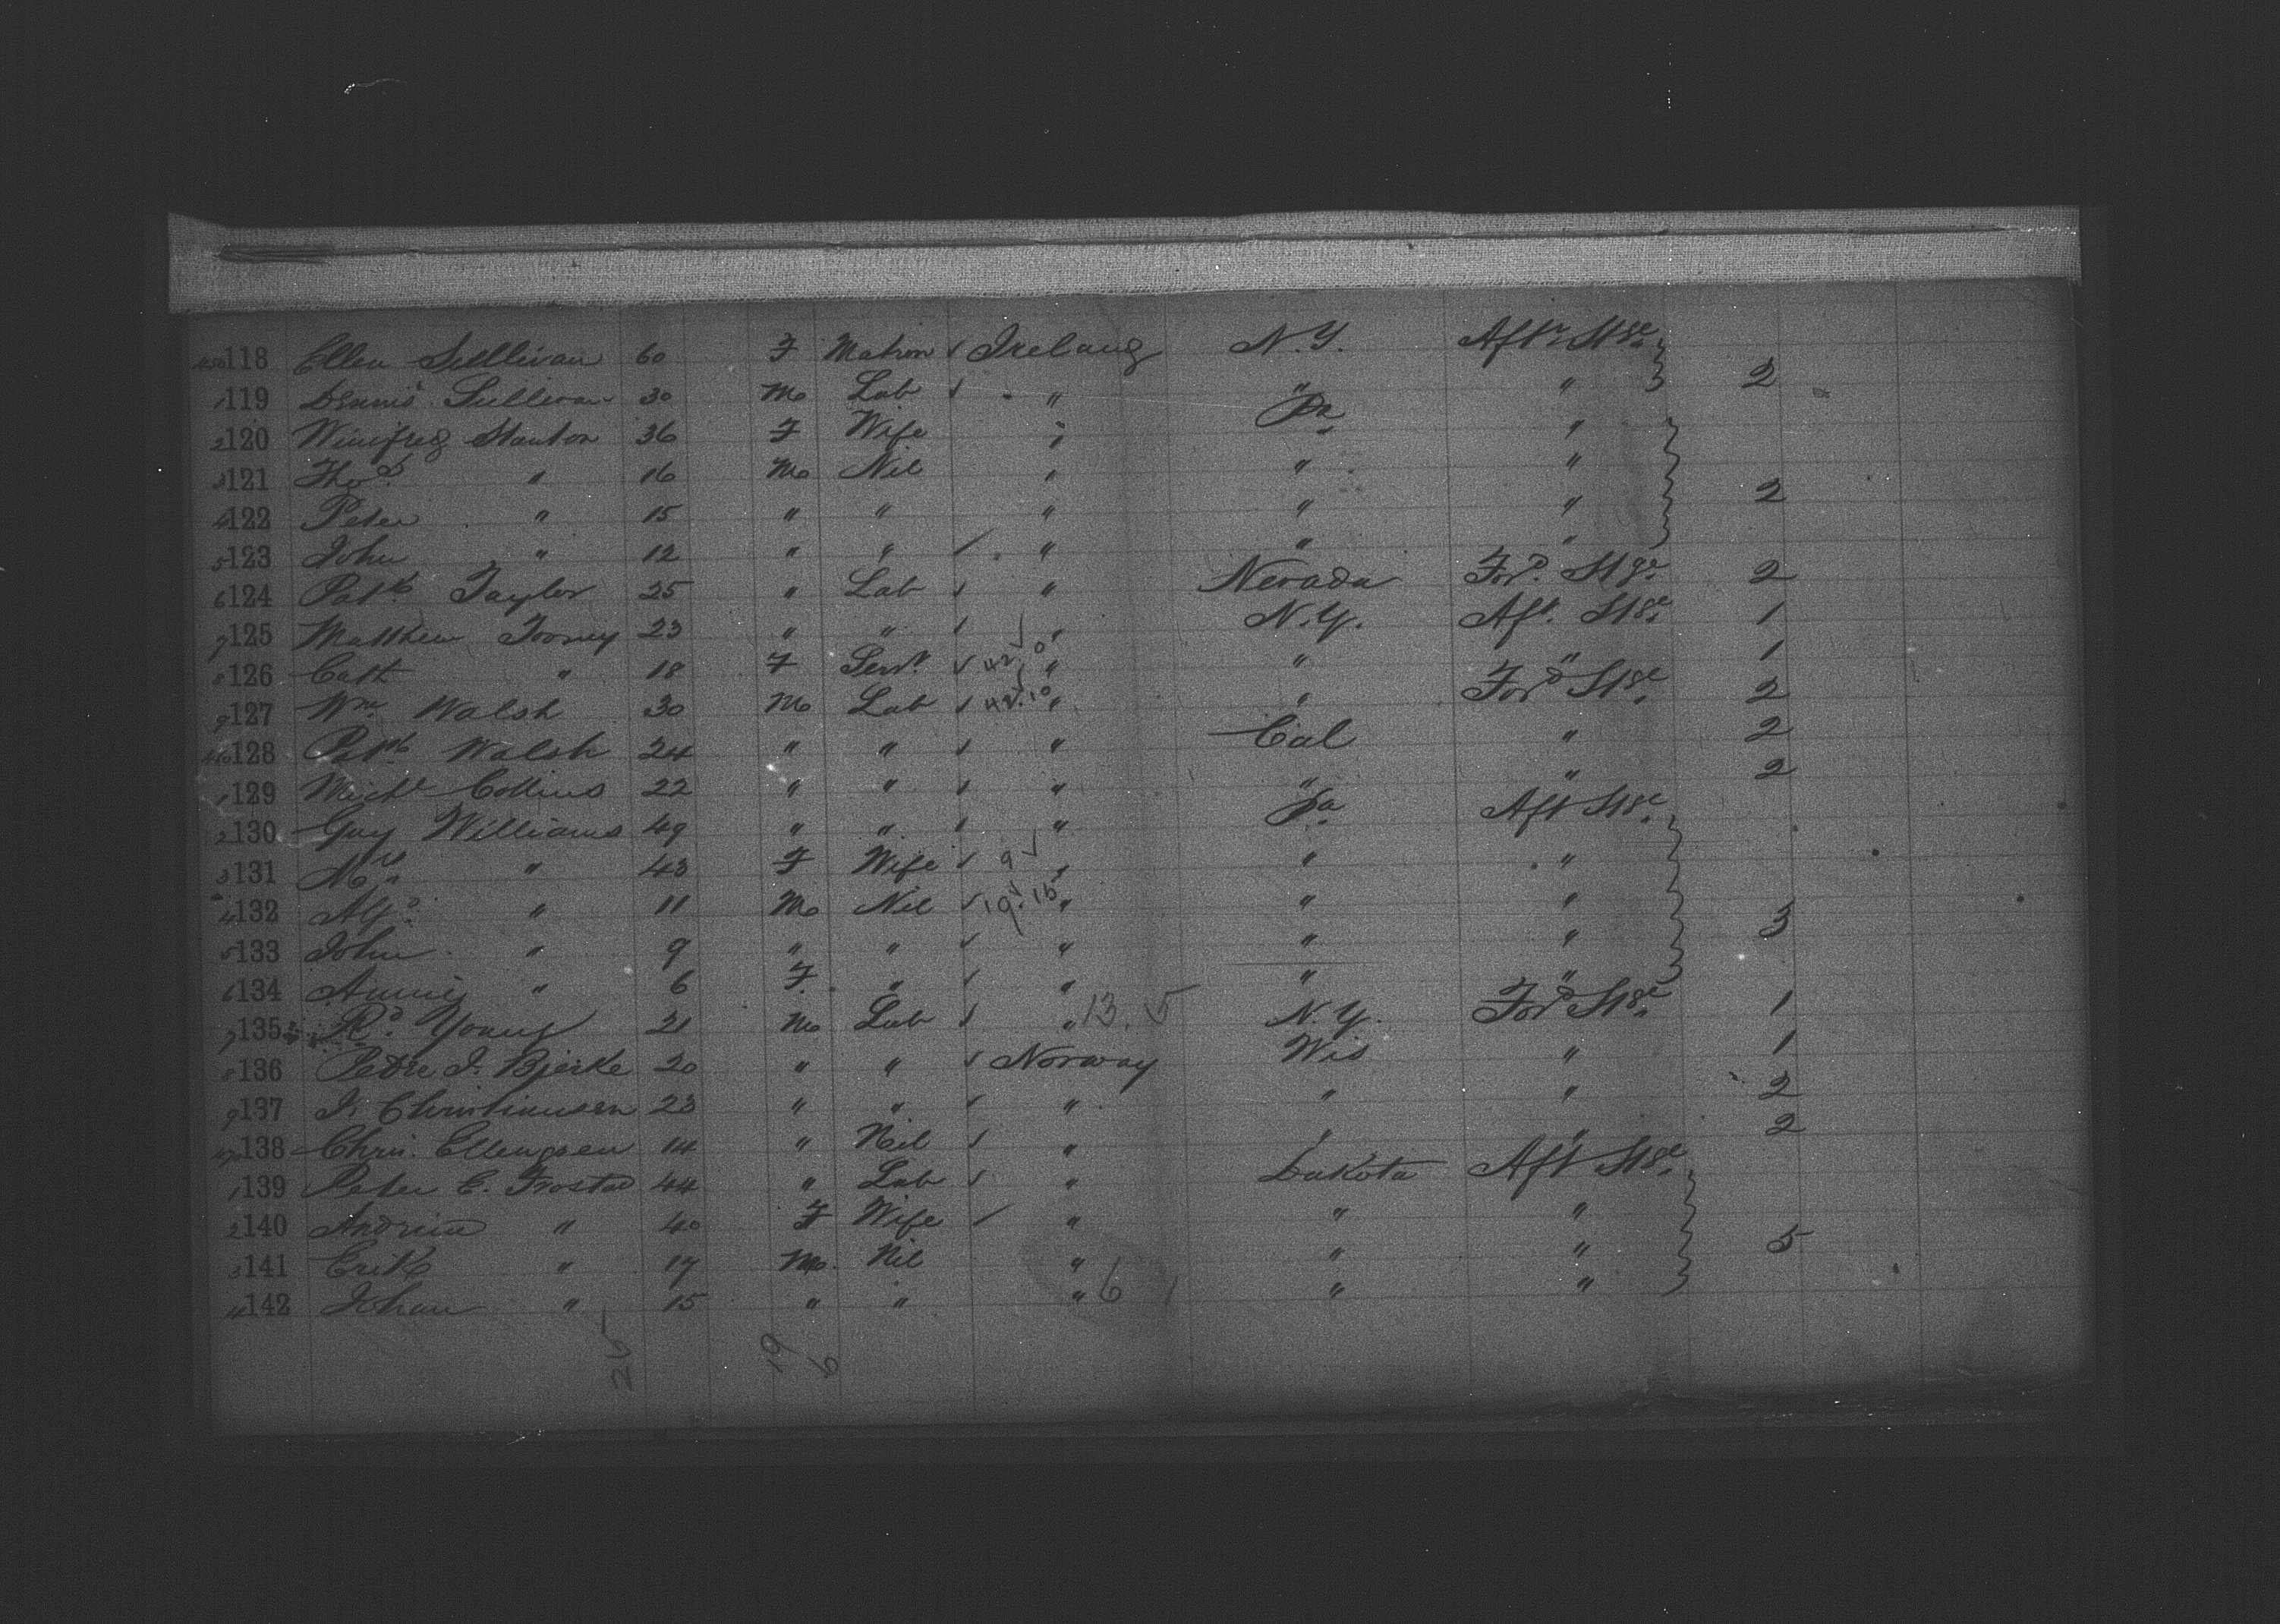 450 118 Ellen Sullivan 60 F Matron ✓ Ireland N.Y. Aftr Stge 2
1 119 Dennis Sullivan 30 M Lab ✓ " " "
2 120 Winifred Stanton 36 F Wife " Pa "
3 121 Thos " 16 M Nil " " "
4 122 Peter " 15 " " " " " 2
5 123 John " 12 " " ✓ " " "
6 124 Patk Taylor 25 " Lab ✓ " Nevada Ford Stge 2
7 125 Matthew Toomey 23 " " ✓ " N.Y. Aft Stge 1
8 126 Cath " 18 F Servt ✓ " " " 1
9 127 Wm Walsh 30 M Lab ✓ " " Ford Stge 2
460 128 Patk Walsh 24 " " ✓ " Cal " 2
1 129 Michl Collins 22 " " ✓ " " " 2
2 130 Guy Williams 49 " " ✓ " Pa Aft Stge
3 131 Mrs " 43 F Wife ✓ 9 ✓ " " "
4 132 Alfd " 11 M Nil ✓ " " " 3
5 133 John " 9 " " ✓ " " "
6 134 Annie " 6 F " ✓ " " "
7 135 Rd Young 21 M Lab ✓ " 13. ✓ N.Y. Ford Stge 1
8 136 Pedre J. Bjerke 20 " " ✓ Norway Wis " 1
9 137 J. Christiansen 23 " " ✓ " " " 2
470 138 Chri. Ellengsen 14 " Nil ✓ " " " 2
1 139 Peter E. Trostad 44 " Lab ✓ " Dakota Aft Stge
2 140 Andrine " 40 F Wife ✓ " " "
3 141 Erik " 17 M Nil " " " 5
4 142 Johan " 15 " " " 6 " "
19 6